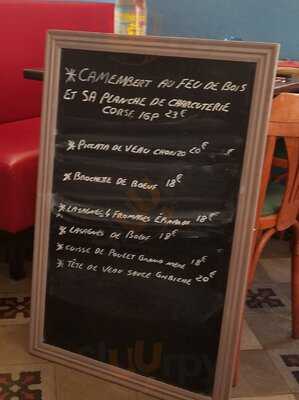 * CAMEMBERT AU FEU DE BOIS
ET SA PLANCHE DE CHARCUTERIE
CORSE IGP 23€
* PICATA DE VEAU CHORIZO 20€
* BROCHETTE DE BOEUF 18€
* LASAGNES 4 FROMAGES EPINARDS 18€
* LASAGNES DE BOEUF 18€
* CUISSE DE POULET GRAND MERE 18€
* TÊTE DE VEAU SAUCE GRIBICHE 20€